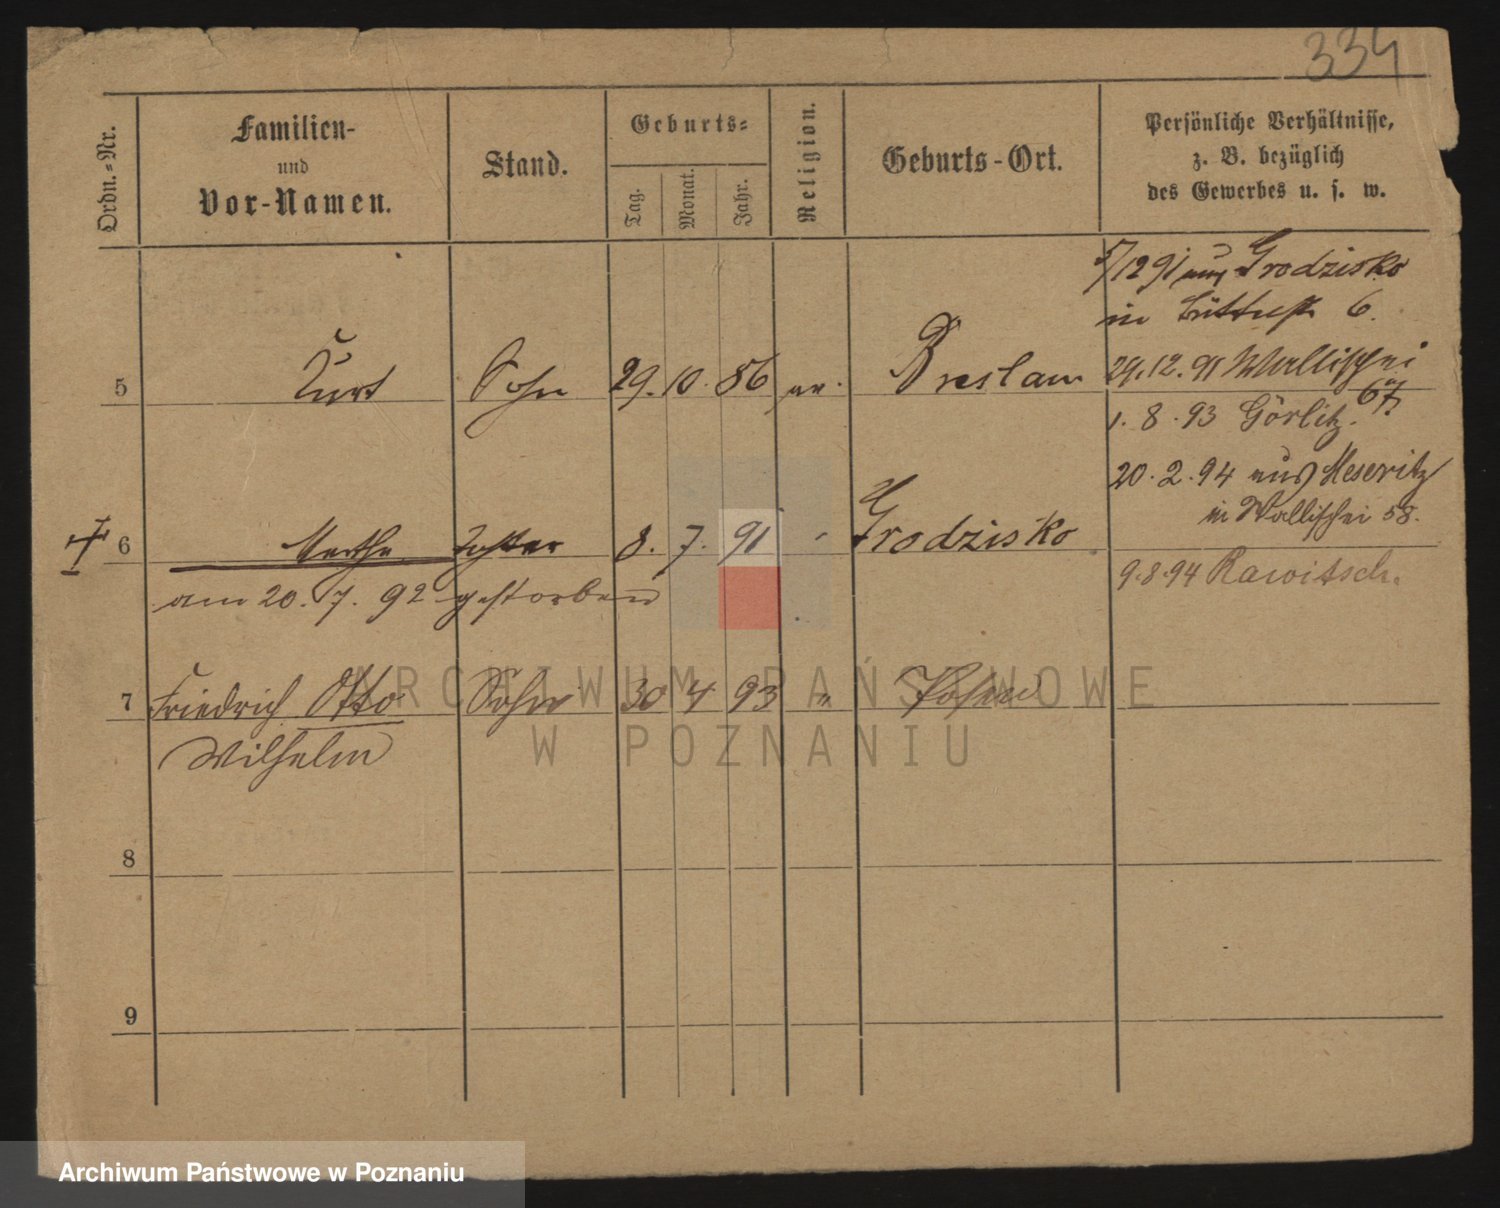 334
Ordn.-Nr.
Familien-
und
Vor-Namen.
Stand.
Geburts-
Tag.
Monat.
Jahr.
Religion.
Geburts-Ort.
Persönliche Verhältnisse,
z. B. bezüglich
des Gewerbes u. s. w.
5/12 91 aus Grodzisko
in 6.
5 Kurt Sohn 29. 10. 86 ev. Breslau 29.12.91 Wallischei
67
1. 8. 93 Görlitz.
20. 2. 94 aus Meseritz
in Wallischei 58.
6 Marthe Tochter 8. 7. 91 " Grodzisko
9.8.94 Rawitsch.
am 20. 7. 92 gestorben
7 Friedrich Otto Sohn 30 4 93 " Posen
Wilhelm
8
9
ARCHIWUM PAŃSTWOWE
W POZNANIU
Archiwum Państwowe w Poznaniu